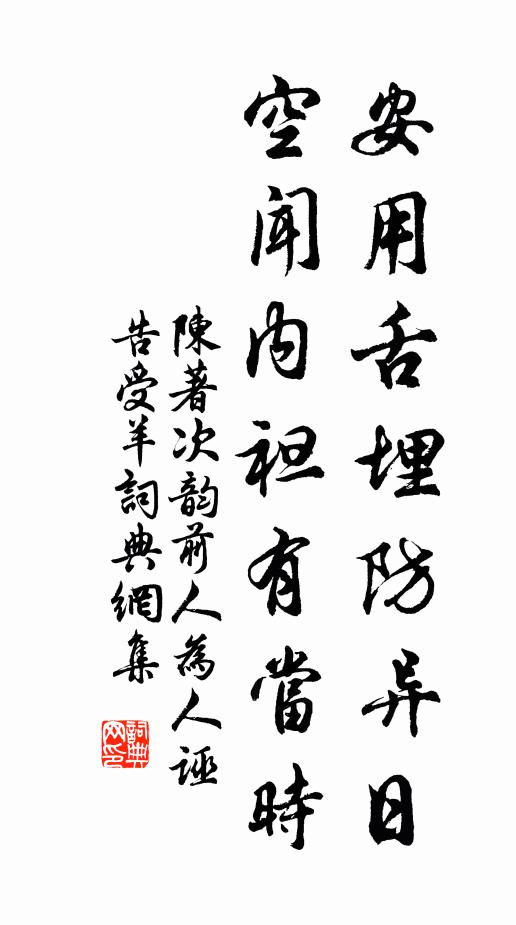 安用舌埋防异日
空聞内袒有當時
陳著次韵前人為人誣
告受羊詞典網集
詞典網印